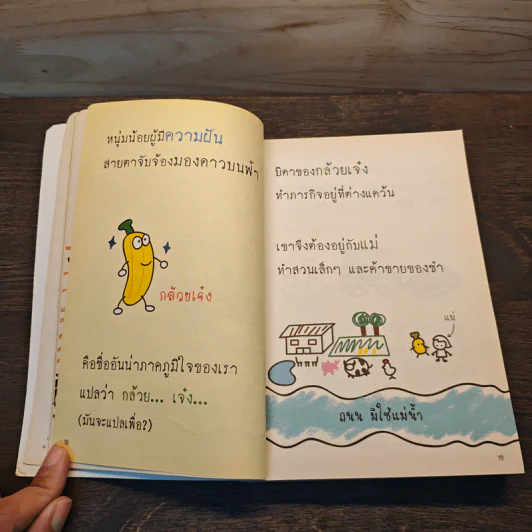 หนุ่มน้อยผู้มีความฝัน
สายตาจับจ้องมองดาวบนฟ้า
กล้วยเจ๋ง
คือชื่ออันน่าภาคภูมิใจของเรา
แปลว่า กล้วย... เจ๋ง...
(มันจะแปลเพื่อ?)
บิดาของกล้วยเจ๋ง
ทำภารกิจอยู่ที่ต่างแคว้น
เขาจึงต้องอยู่กับแม่
ทำสวนเล็กๆ และค้าขายของชำ
แม่
ถนน มิใช่แม่น้ำ
19